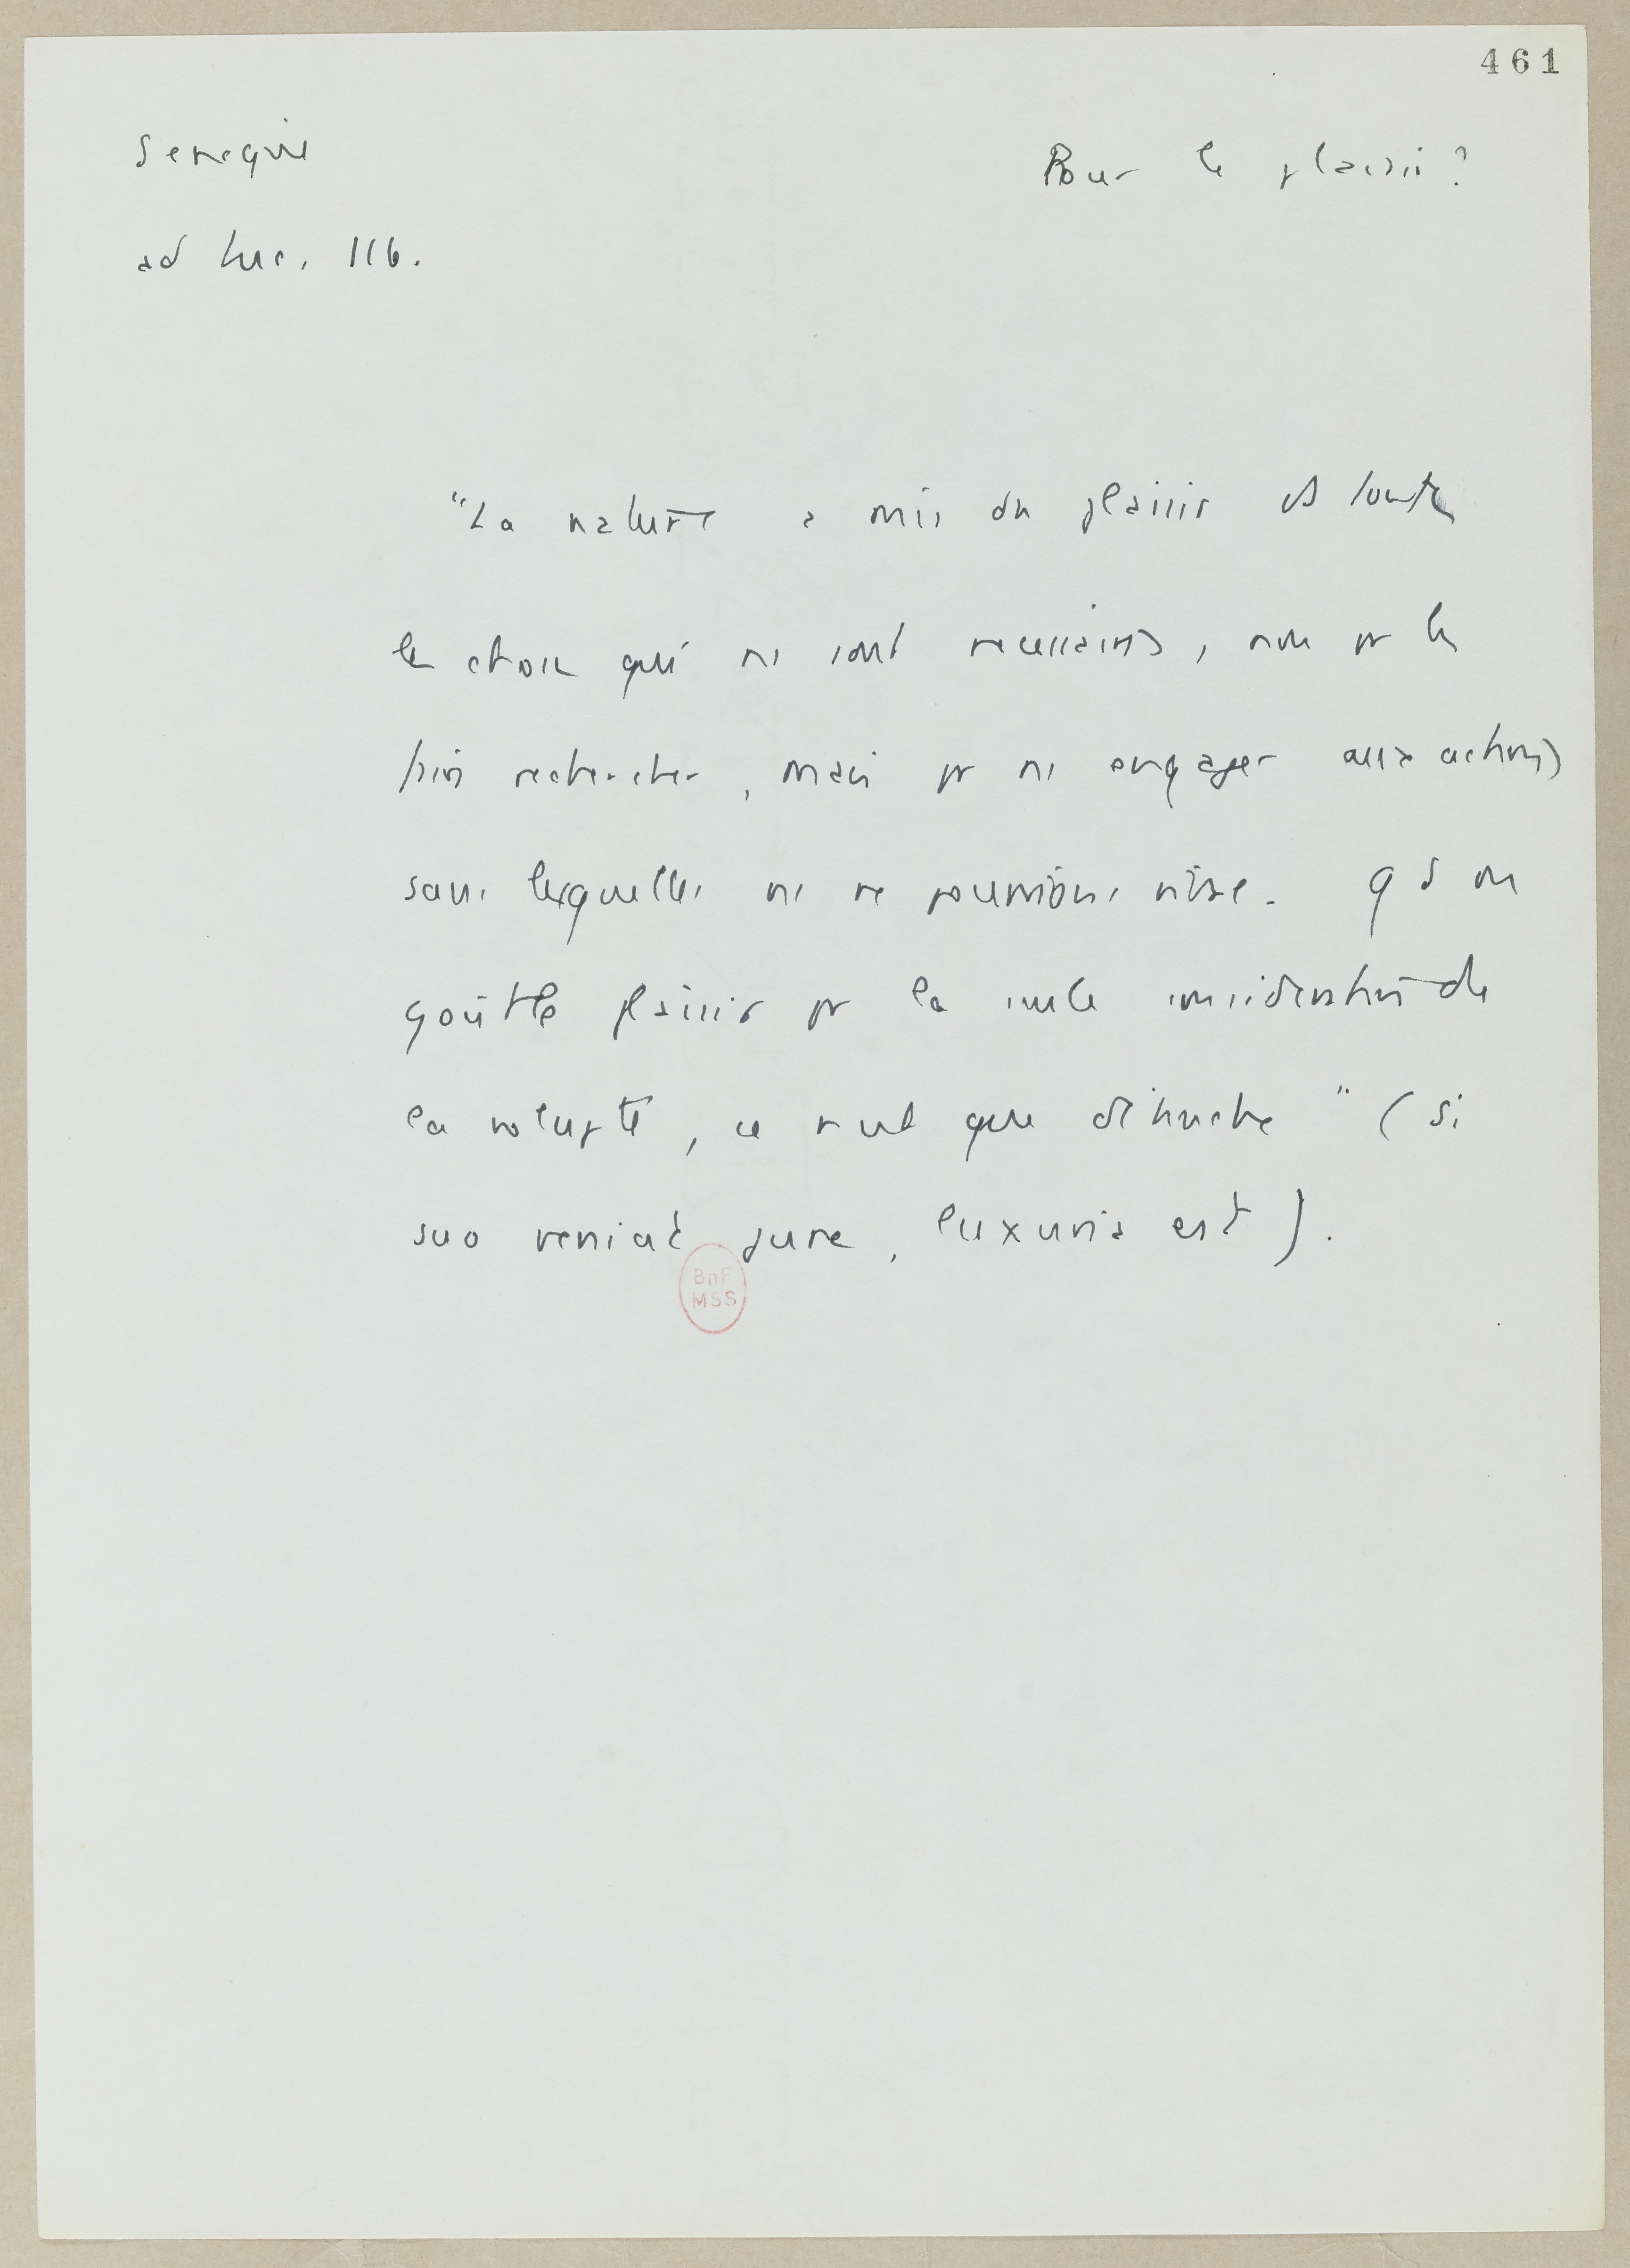 461
Seneque
Pour le plaisir ?
ad Luc. 116.
"La nature a mis du plaisir ds toutes
les choses qui ns sont necessaires, non pr les
faire rechercher, mais pr ns engager aux actions
sans lesquelles ns ne pourrions vivre. Qd on
goûte le plaisir pr la seule consideration de
la volupté, ce n'est que débauche" (si
suo veniat jure, luxuria est).
BnF
MSS